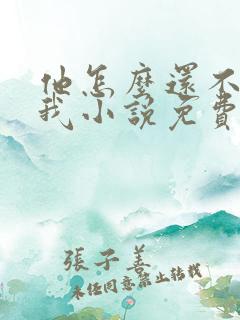 他怎麼還不
我小說免費
張子善
未經同意禁止轉載